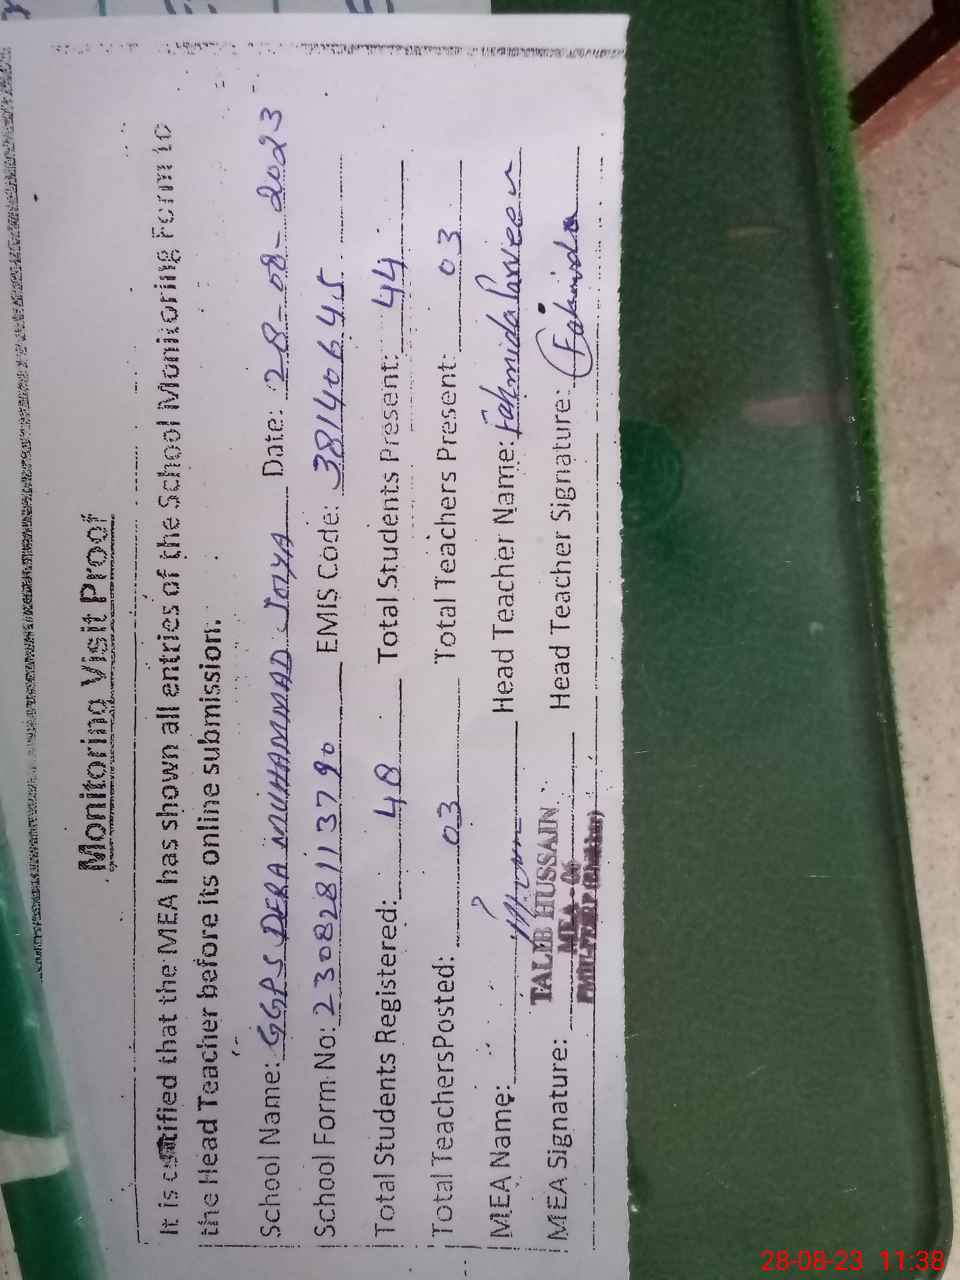 Monitoring Visit Proof
It is certified that the MEA has shown all entries of the School Monitoring Form to
the Head Teacher before its online submission.
School Name: GGPS DERA MUHAMMAD JOYA Date: 28-08-2023
School Form No: 230828113790 EMIS Code: 38140645
Total Students Registered: 48 Total Students Present: 44
Total TeachersPosted: 03 Total Teachers Present: 03
MEA Name: Head Teacher Name: Fahmida Parveen
TALIB HUSSAIN
MEA Signature: MEA - 06 Head Teacher Signature: Fahmida
28-08-23 11:38